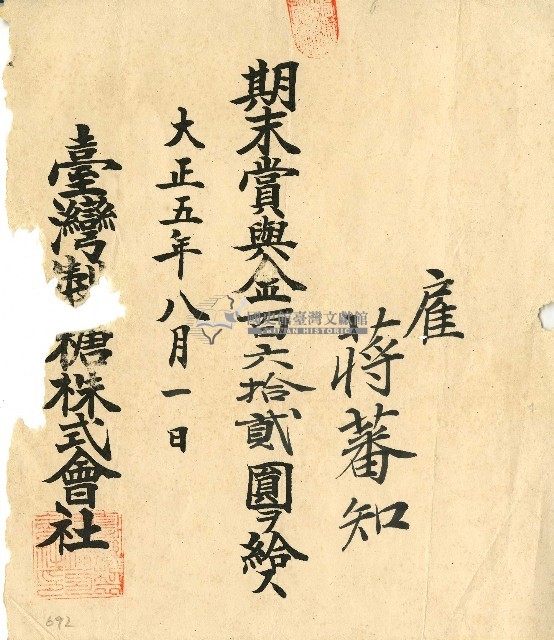 雇
蔣蕃知
期末賞與金百六拾貳圓ヲ給ス
大正五年八月一日
臺灣製糖株式會社
國史館臺灣文獻館
TAIWAN HISTORICA
692